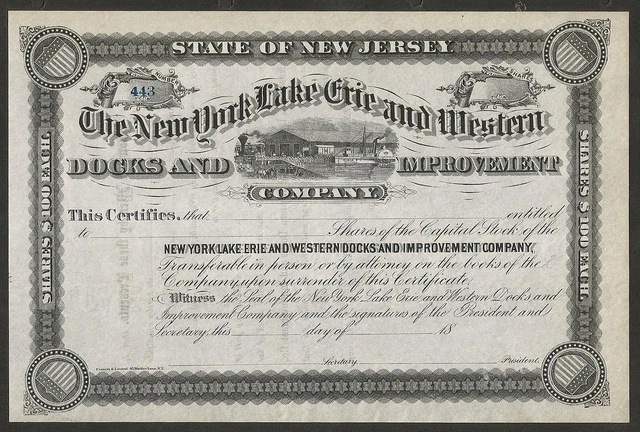 STATE OF NEW JERSEY.
NUMBER
443
SHARES
The New York Lake Erie and Western
DOCKS AND IMPROVEMENT
COMPANY.
SHARES $100 EACH.
SHARES $100 EACH.
This Certifies, that entitled
to Shares of the Capital Stock of the
NEW YORK LAKE ERIE AND WESTERN DOCKS AND IMPROVEMENT COMPANY,
Transferable in person or by attorney on the books of the
Company upon surrender of this Certificate.
Witness the Seal of the New York Lake Erie and Western Docks and
Improvement Company and the signatures of the President and
Secretary, this day of 18
Secretary. President.